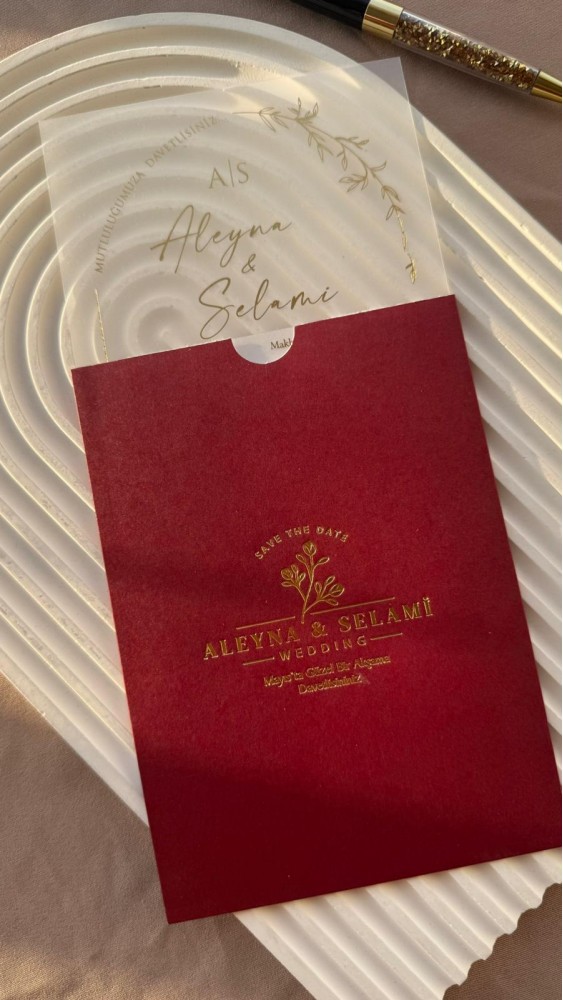 MUTLULUĞUMUZA DAVETLİSİNİZ
A|S
Aleyna
&
Selami
SAVE THE DATE
ALEYNA & SELAMİ
WEDDING
Mayıs'ta Güzel Bir Akşama
Davetlisiniz